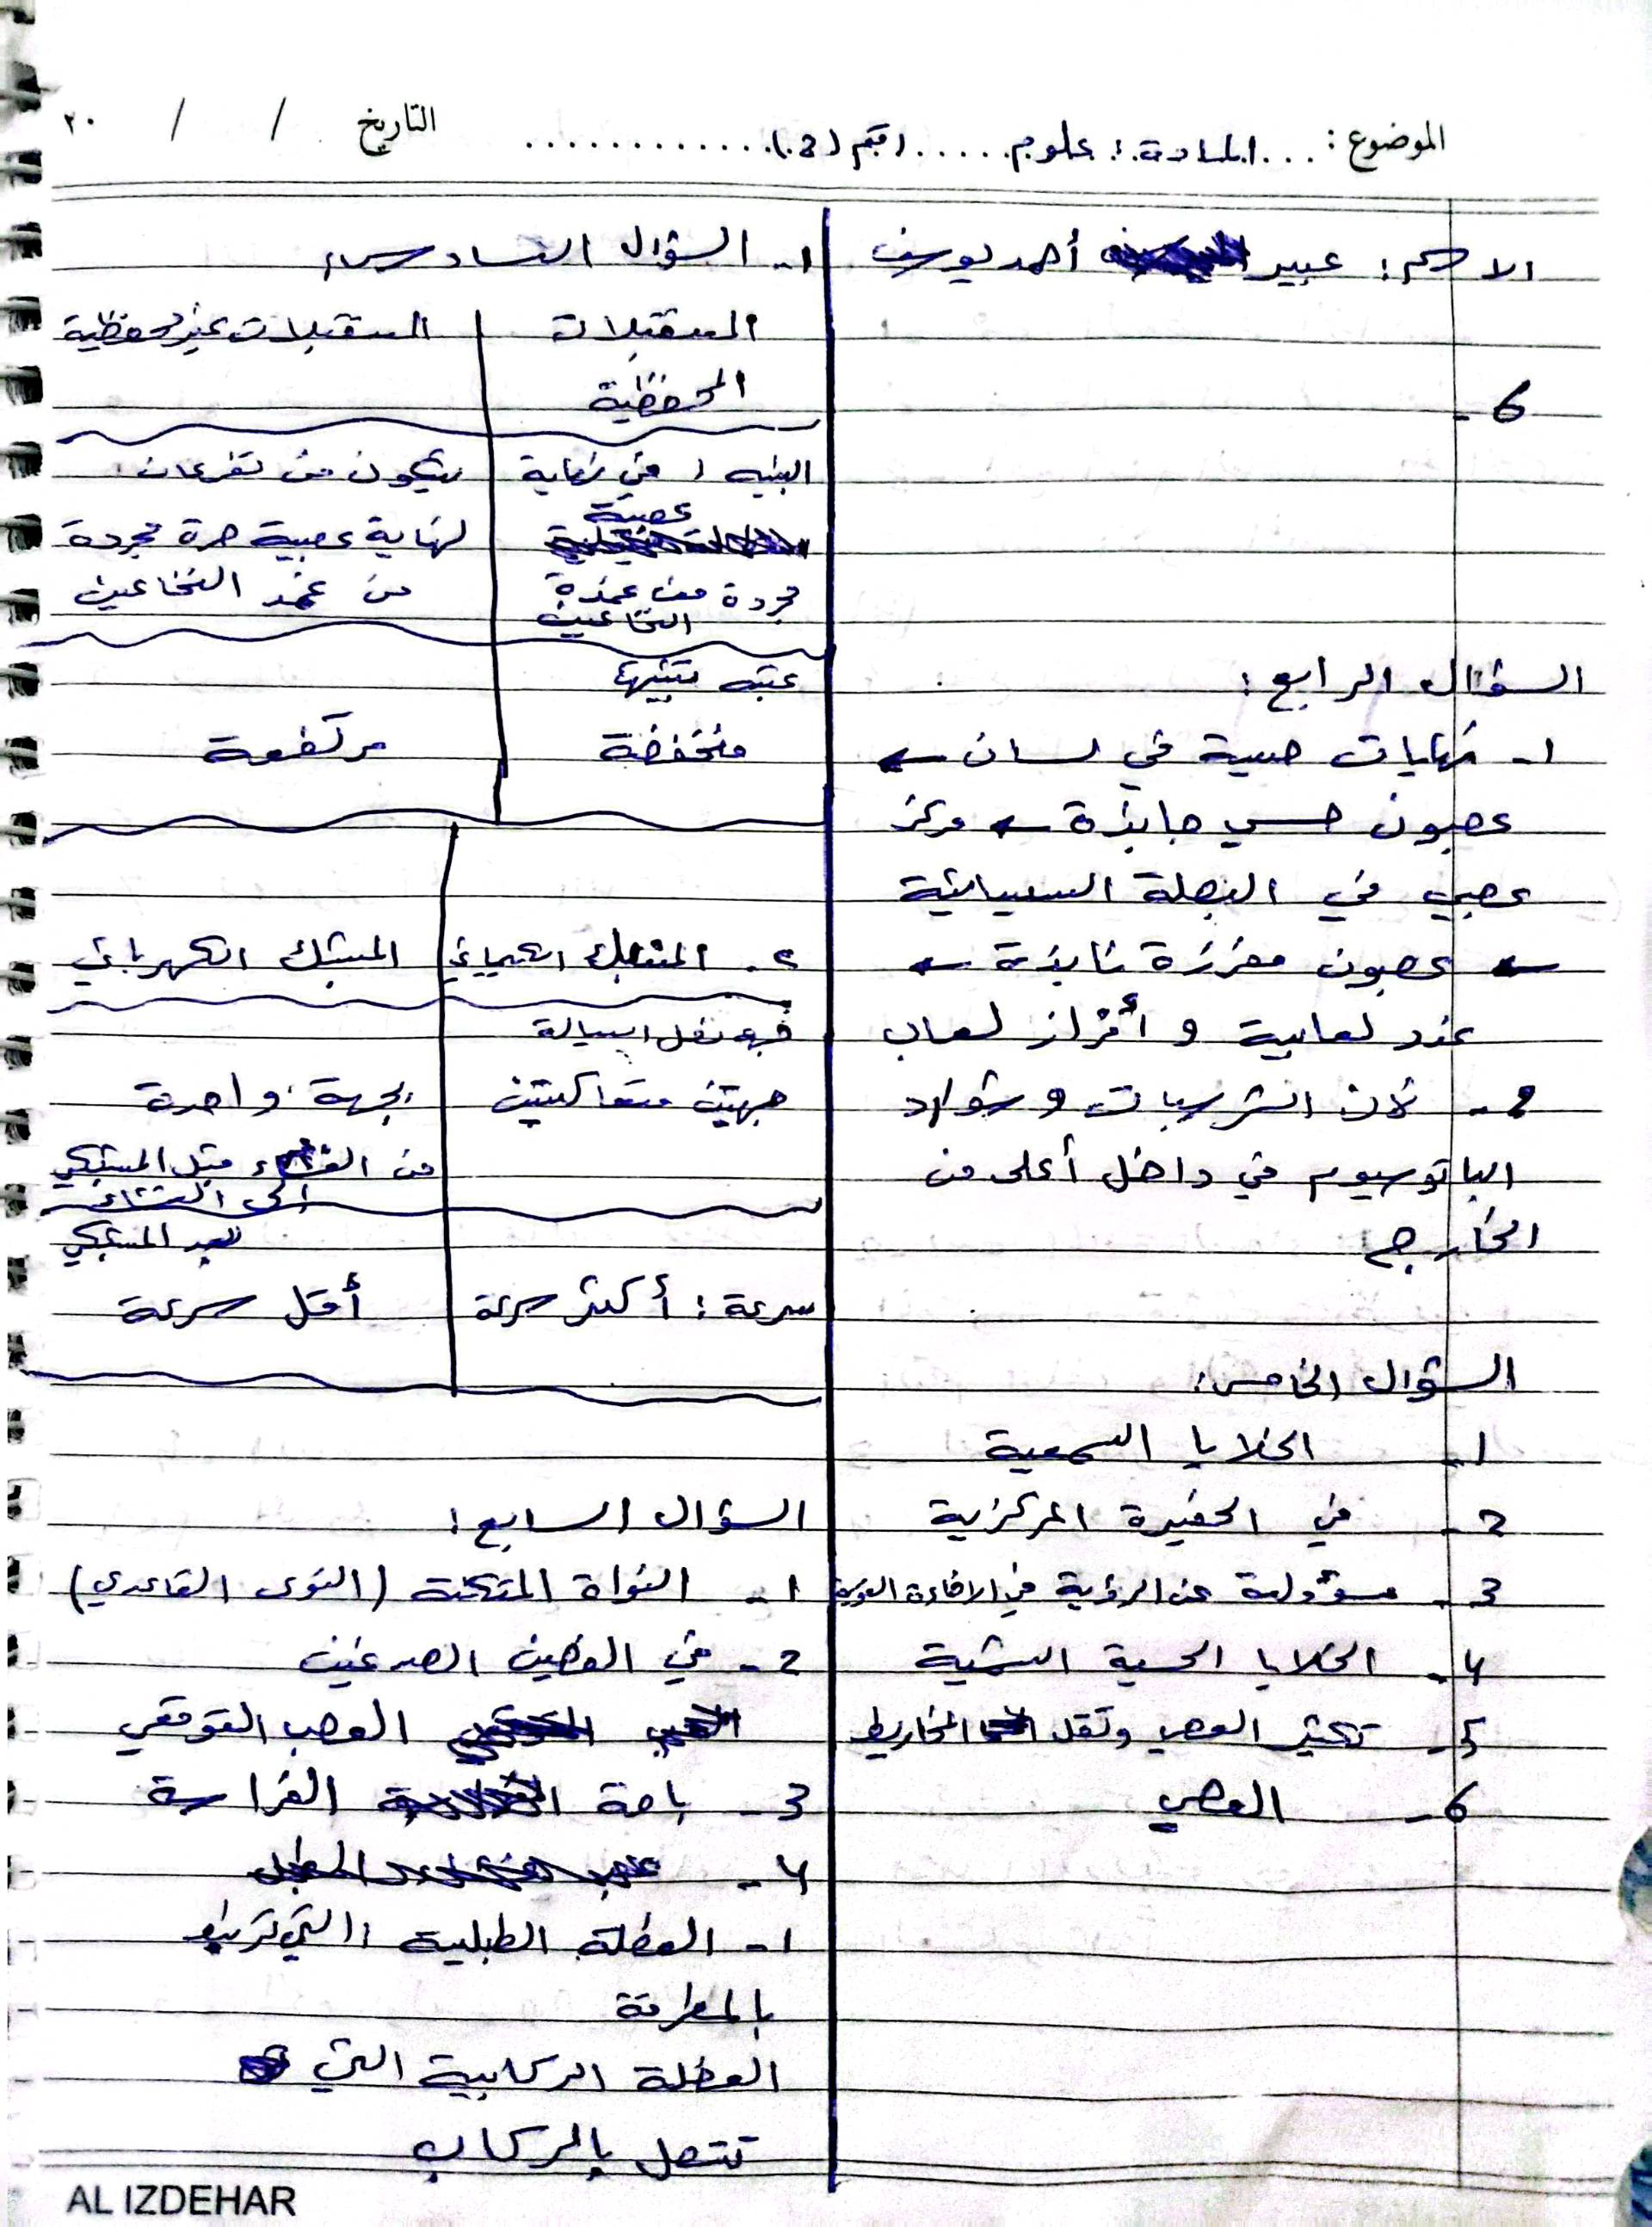 الموضوع: المادة: علوم رقم (2) التاريخ / / ٢٠
الاسم: عبير أحمد يوسف
6-
السؤال الرابع:
١- نهايات حسية في لسان ←
عصبون حسي جابذة ← مركز
عصبي في البصلة السيسائية
← عصبون مفرزة نابذة ←
غدد لعابية و أفراز لعاب
2- لأن الشرسبات و شوارد
الباتوسيوم في داخل أعلى من
الخارج
السؤال الخامس:
1- الخلايا السمعية
2- في الحفيرة المركزية
3- مسؤولية عن الرؤية في الاضاءة القوية
4- الخلايا الحسية الشمية
5- تكثير العصي وتقل المخاريط
6- العصي
١- السؤال السادس:
المستقبلات المحفظية
المستقبلات غير محفظية
البنيه: من نهاية
عصبية
مجردة من غمدة
النخاعين
يتكون من تفرعات
لنهاية عصبية حرة مجردة
من غمد النخاعين
عتبه تنبيهها
منخفضة
مرتفعة
2- المشبك الكيميائي
المشبك الكهربائي
جهة نقل السيالة
جهتين متعاكستين
بجهة واحدة
من الغشاء قبل المشبكي
الى الغشاء
بعد المشبكي
سرعة: أكثر سرعة
أقل سرعة
السؤال السابع:
1- النواة المتكئة (النوى القاعدي)
2- في الفصين الصدغين
العصب القوقعي
3- باحة الفراسة
4-
1- العضلة الطبلية: التي ترتبط
بالمطرقة
العضلة الركابية التي
تتصل بالركاب
AL IZDEHAR